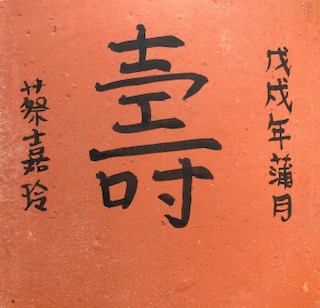 戊戌年蒲月
壽
蔡嘉玲